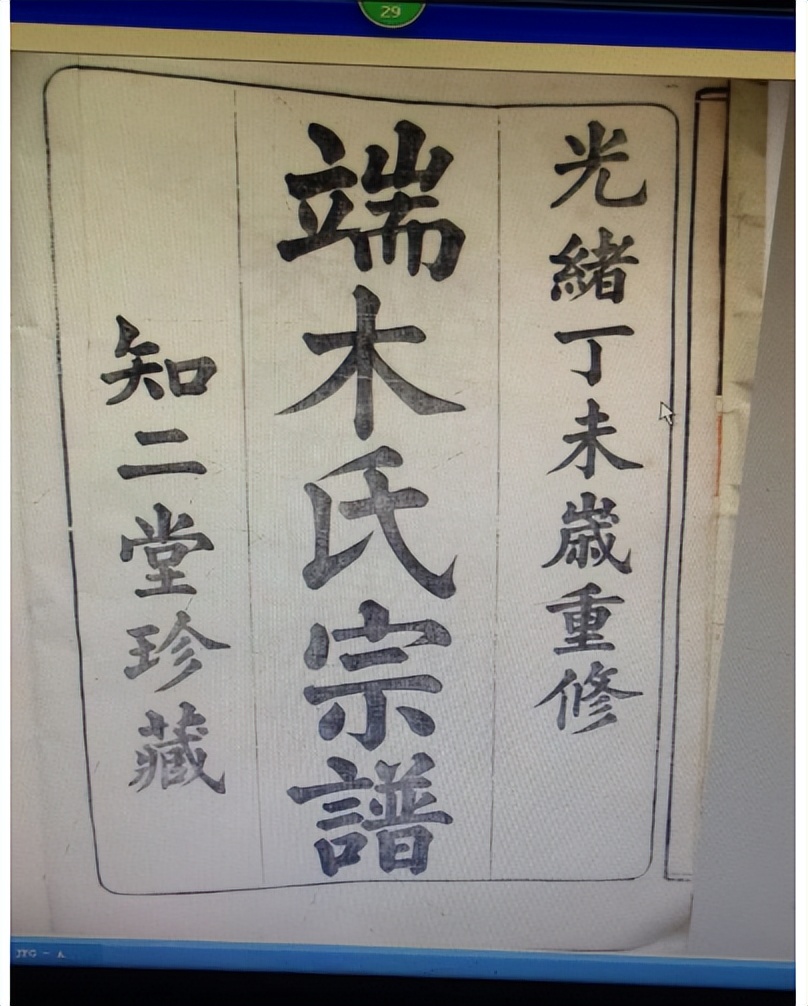 29
光緒丁未歲重修
端木氏宗譜
知二堂珍藏